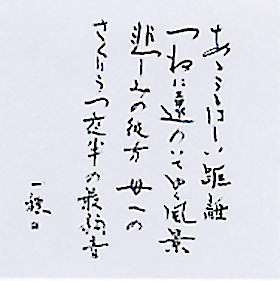 あゝうるはしい距離
つねに遠のいてゆく風景
悲しみの彼方 母への
さぐりうつ夜半の最弱音
一穂